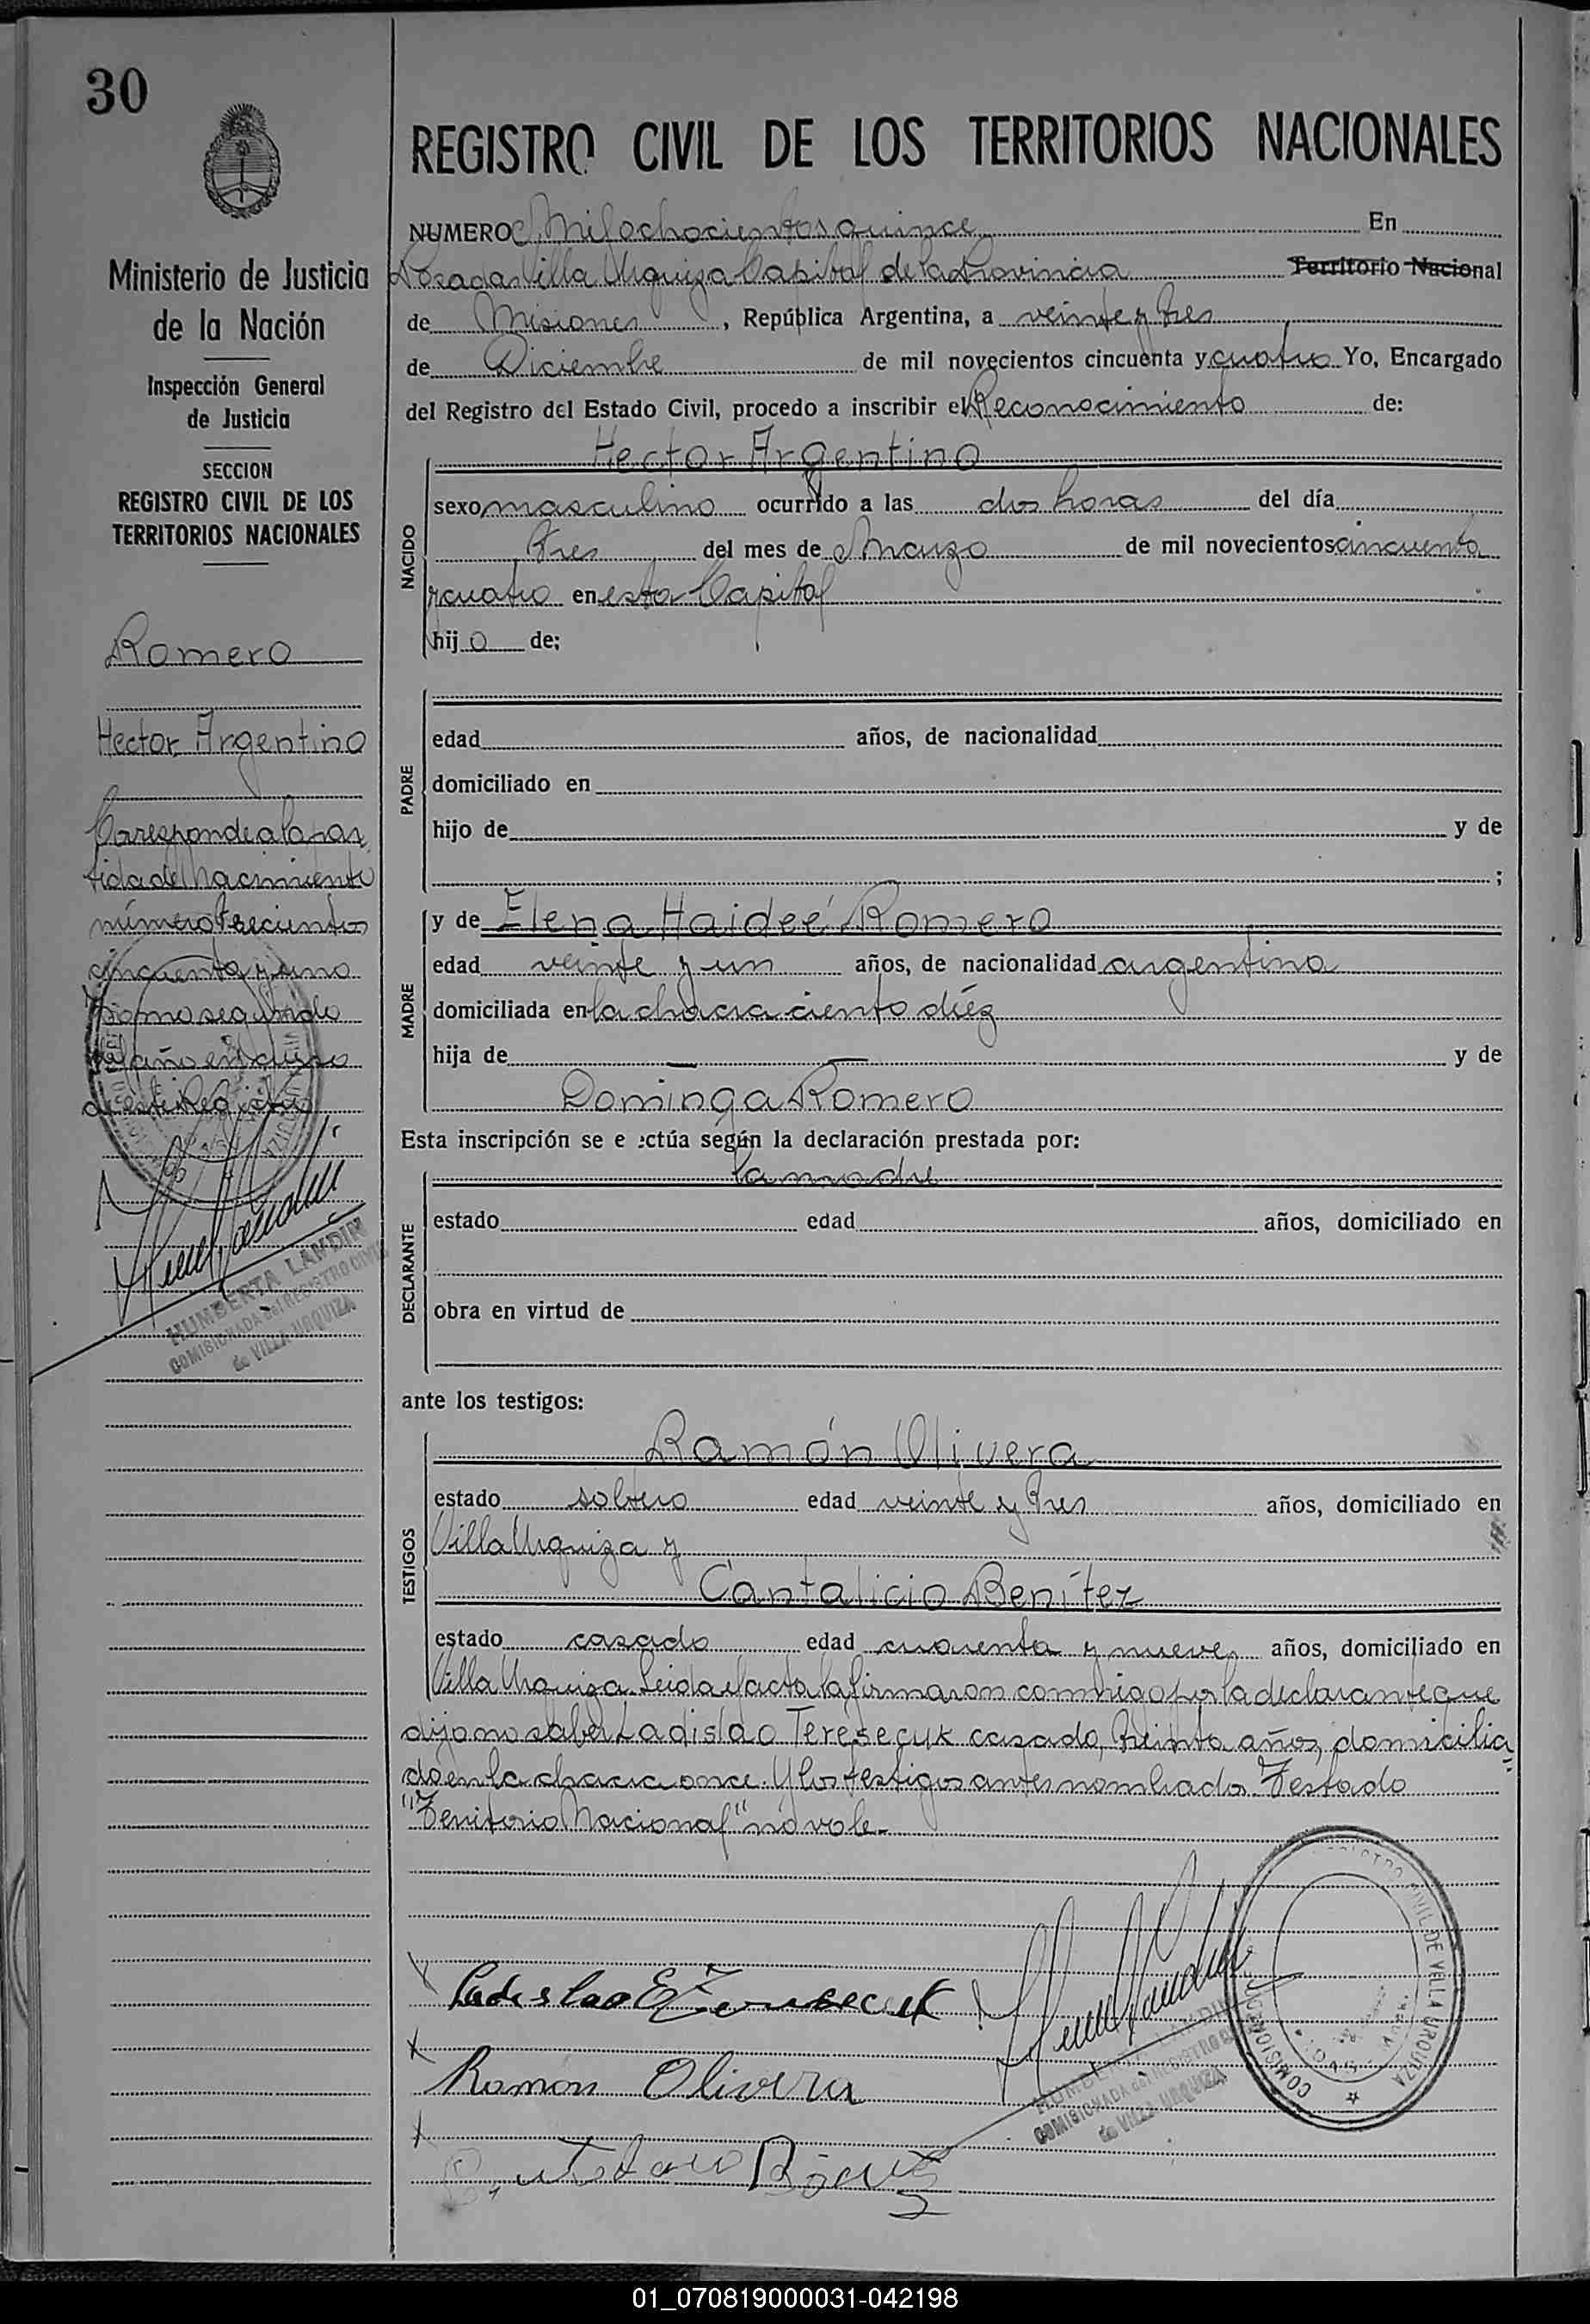 30
REGISTRO CIVIL DE LOS TERRITORIOS NACIONALES
Ministerio de Justicia
de la Nación
Inspección General
de Justicia
SECCION
REGISTRO CIVIL DE LOS
TERRITORIOS NACIONALES
Romero
Hector Argentino
Corresponde a la par
tida de Nacimiento
número trecientos
cincuenta y uno
Tomo segundo
del año en curso
de este Registro
HUMBERTA LANDIN
COMISIONADA del REGISTRO CIVIL
de VILLA URQUIZA
NUMERO Mil ochocientos quince En
Posadas Villa Urquiza Capital de la Provincia Territorio Nacional
de Misiones, República Argentina, a veinte y tres
de Diciembre de mil novecientos cincuenta y cuatro Yo, Encargado
del Registro del Estado Civil, procedo a inscribir el Reconocimiento de:
NACIDO
Hector Argentino
sexo masculino ocurrido a las dos horas del día
tres del mes de Marzo de mil novecientos cincuenta
y cuatro en esta Capital
hijo de;
PADRE
edad años, de nacionalidad
domiciliado en
hijo de y de
;
MADRE
y de Elena Haideé Romero
edad veinte y un años, de nacionalidad argentina
domiciliada en la chacra ciento diéz
hija de — — y de
Dominga Romero
Esta inscripción se e ectúa según la declaración prestada por:
DECLARANTE
la madre
estado edad años, domiciliado en
obra en virtud de
ante los testigos:
TESTIGOS
Ramón Olivera
estado soltero edad veinte y tres años, domiciliado en
Villa Urquiza y
Cantalicio Benítez
estado casado edad cuarenta y nueve años, domiciliado en
Villa Urquiza. Leida el acta la firmaron conmigo por la declarante que
dijo no saber Ladislao Teresecyk casado, treinta años, domicilia
do en la chacra once. Y los testigos antes nombrados. Testado
"Territorio Nacional" no vale.
Ladislao E
Ramón Olivera
HUMBERTA LANDIN
COMISIONADA del REGISTRO CIVIL
de VILLA URQUIZA
REGISTRO CIVIL DE VILLA URQUIZA
01_070819000031-042198